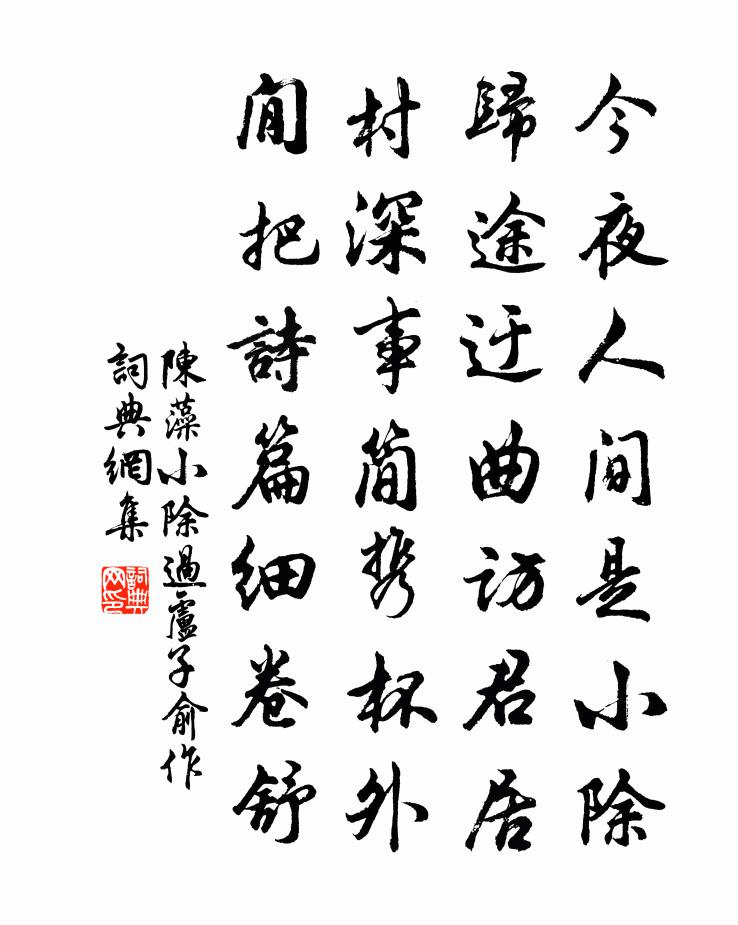 今夜人间是小除
歸途迂曲訪君居
村深事简携杯外
閒把詩篇细卷舒
陳藻小除過盧子俞作
詞典網集
詞典网印